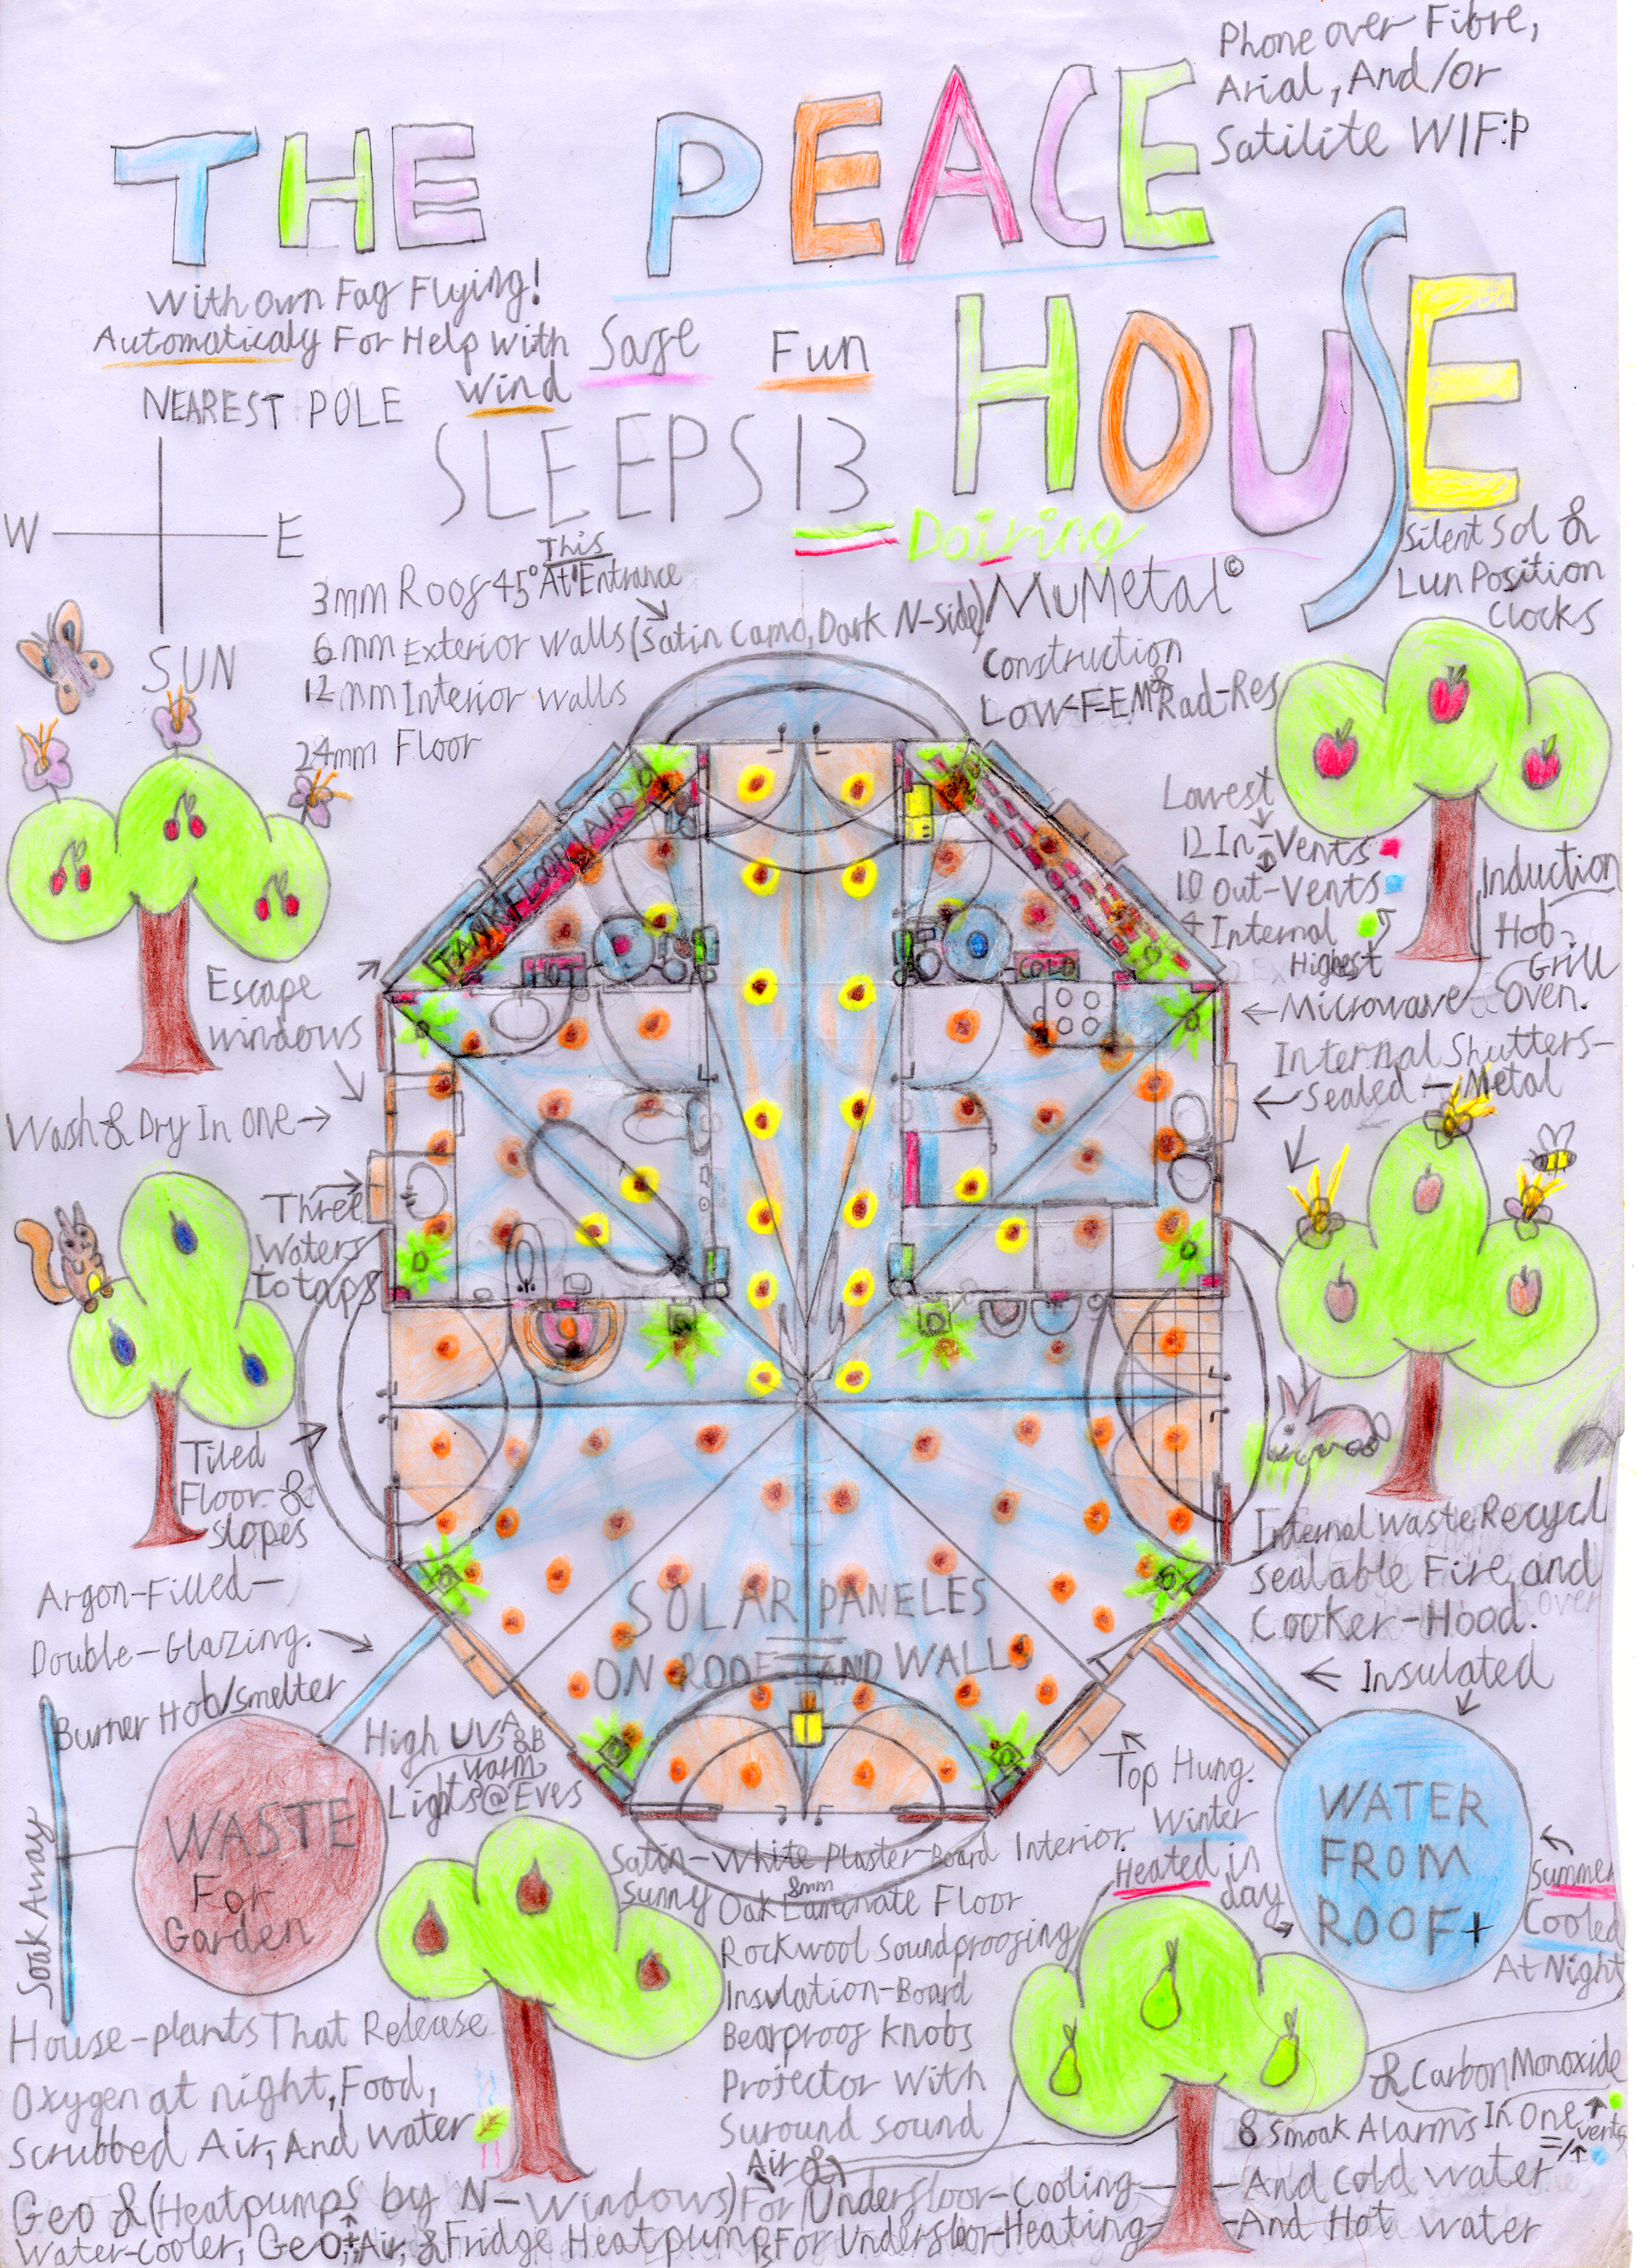 Phone over Fibre,
Arial, And/or
Satilite WIFP
THE PEACE
HOUSE
With own Fag Flying!
Automaticaly For Help with
wind
Safe
Fun
NEAREST POLE
W E
SUN
SLEEPS 13
Dairing
This
3mm Roof 45° At Entrance
6mm Exterior walls (Satin Camo, Dark N-Side)
12mm Interior walls
24mm Floor
MuMetal©
Construction
Low-FEM & Rad-Res
Silent Sol &
Lun Position
Clocks
Lowest
12 In-Vents
10 Out-Vents
4 Internal
Highest
Induction
Hob-
Grill
Oven.
Microwave
Internal Shutters-
Sealed - Metal
Escape
windows
Wash & Dry In One
Three
Waters
to taps
Tiled
Floor &
slopes
HOT
COLD
SOLAR PANELES
ON ROOF AND WALLS
Argon-Filled-
Double-Glazing.
Burner Hob/smelter
Internal Waste Recycl
sealable Fire, and
Cooker-Hood.
Insulated
High UVA
&B
warm
Lights@Eves
Top Hung.
Soak Away
WASTE
For
Garden
WATER
FROM
ROOF+
Winter
Heated in
day
Summer
Cooled
At Night
Satin-White Plaster-Board Interior.
Sunny
8mm
Oak Laminate Floor
Rockwool Soundproofing
Insulation-Board
Bearproof Knobs
Projector With
Suround Sound
House-plants That Release
Oxygen at night, Food,
Scrubbed Air, And water
& Carbon Monoxide
8 Smoak Alarms In One
vents
Air &
Geo & (Heatpumps by N-Windows) For Underfloor-Cooling - And Cold water
Water-cooler, Geo, Air, & Fridge Heatpumps For Underfloor-Heating - And Hot water